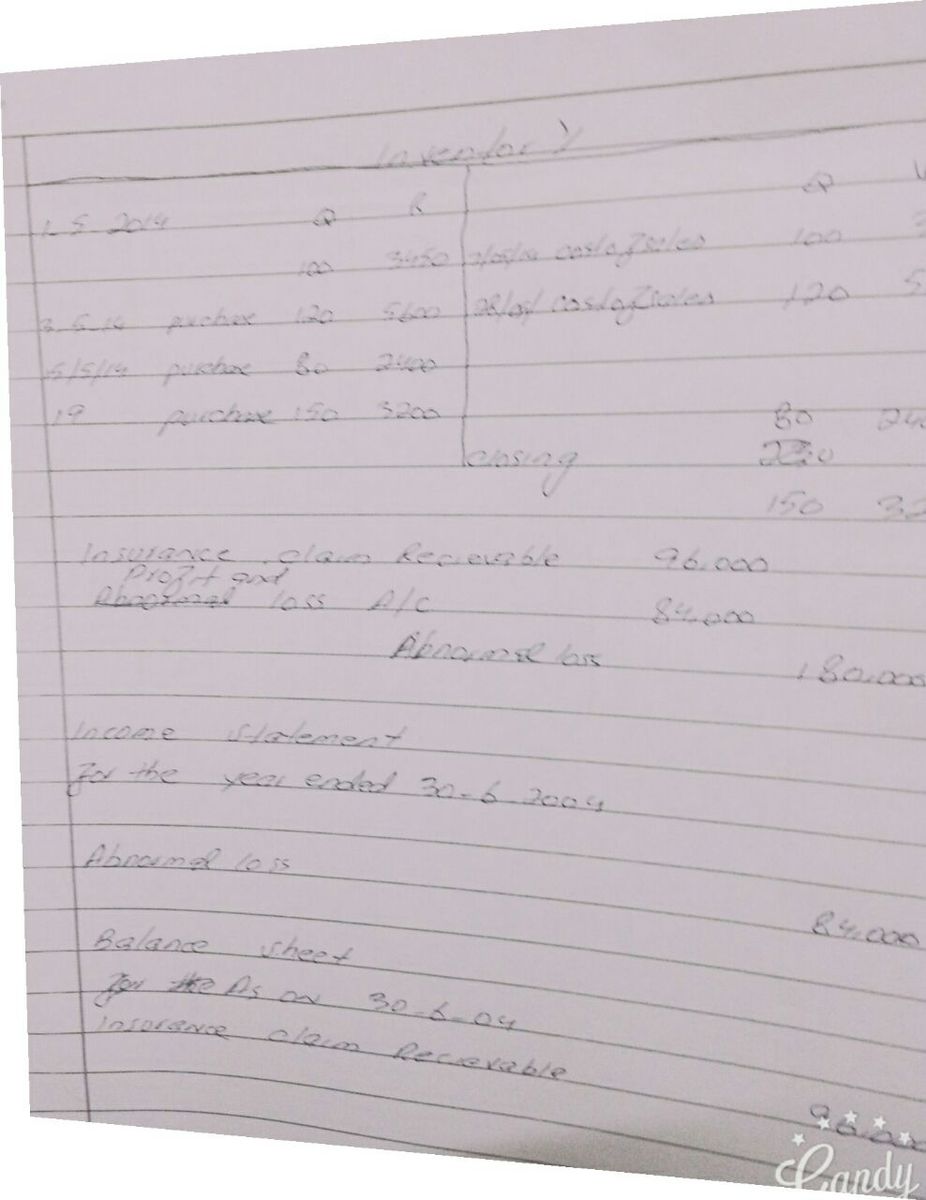 Inventory
1-5-2014 Q R Q
100 3450 cost of sales 100 3
3-5-14 puchase 120 5600 28/05/ cost of sales 120 5
5/5/14 puchase 80 2400
19 puchase 150 3200 80 24
closing
150 32
Insurance claim Recievable 96,000
Profit and
loss A/C 84,000
Abnormal loss 180,000
Income Statement
For the year ended 30-6-2004
Abnormal loss
84,000
Balance sheet
As on 30-6-04
Insurance claim Recievable
96,000
Candy